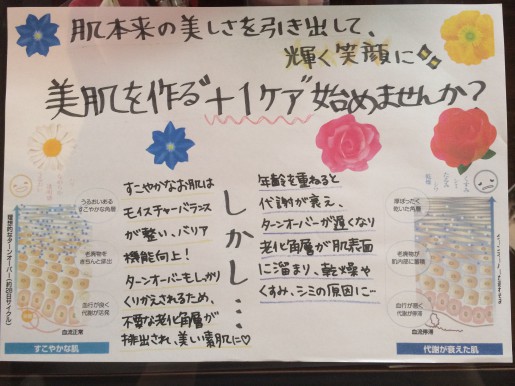 肌本来の美しさを引き出して、
輝く笑顔に
美肌を作る"+1ケア"始めませんか?
すこやかなお肌は
モイスチャーバランス
が整い、バリア
機能向上!
ターンオーバーもしっかり
くりかえされるため、
不要な老化角層が
排出され、美しい素肌に♡
しかし…
年齢を重ねると
代謝が衰え、
ターンオーバーが遅くなり
老化角層が肌表面
に溜まり、乾燥や
くすみ、シミの原因に…
うるおいある
すこやかな角層
老廃物を
きちんと排出
血行が良く
代謝が活発
血流正常
理想的なターンオーバー(約28日サイクル)
すこやかな肌
厚ぼったく
乾いた角層
老廃物が
肌内部に蓄積
血行が悪く
代謝が停滞
血流停滞
代謝が衰えた肌